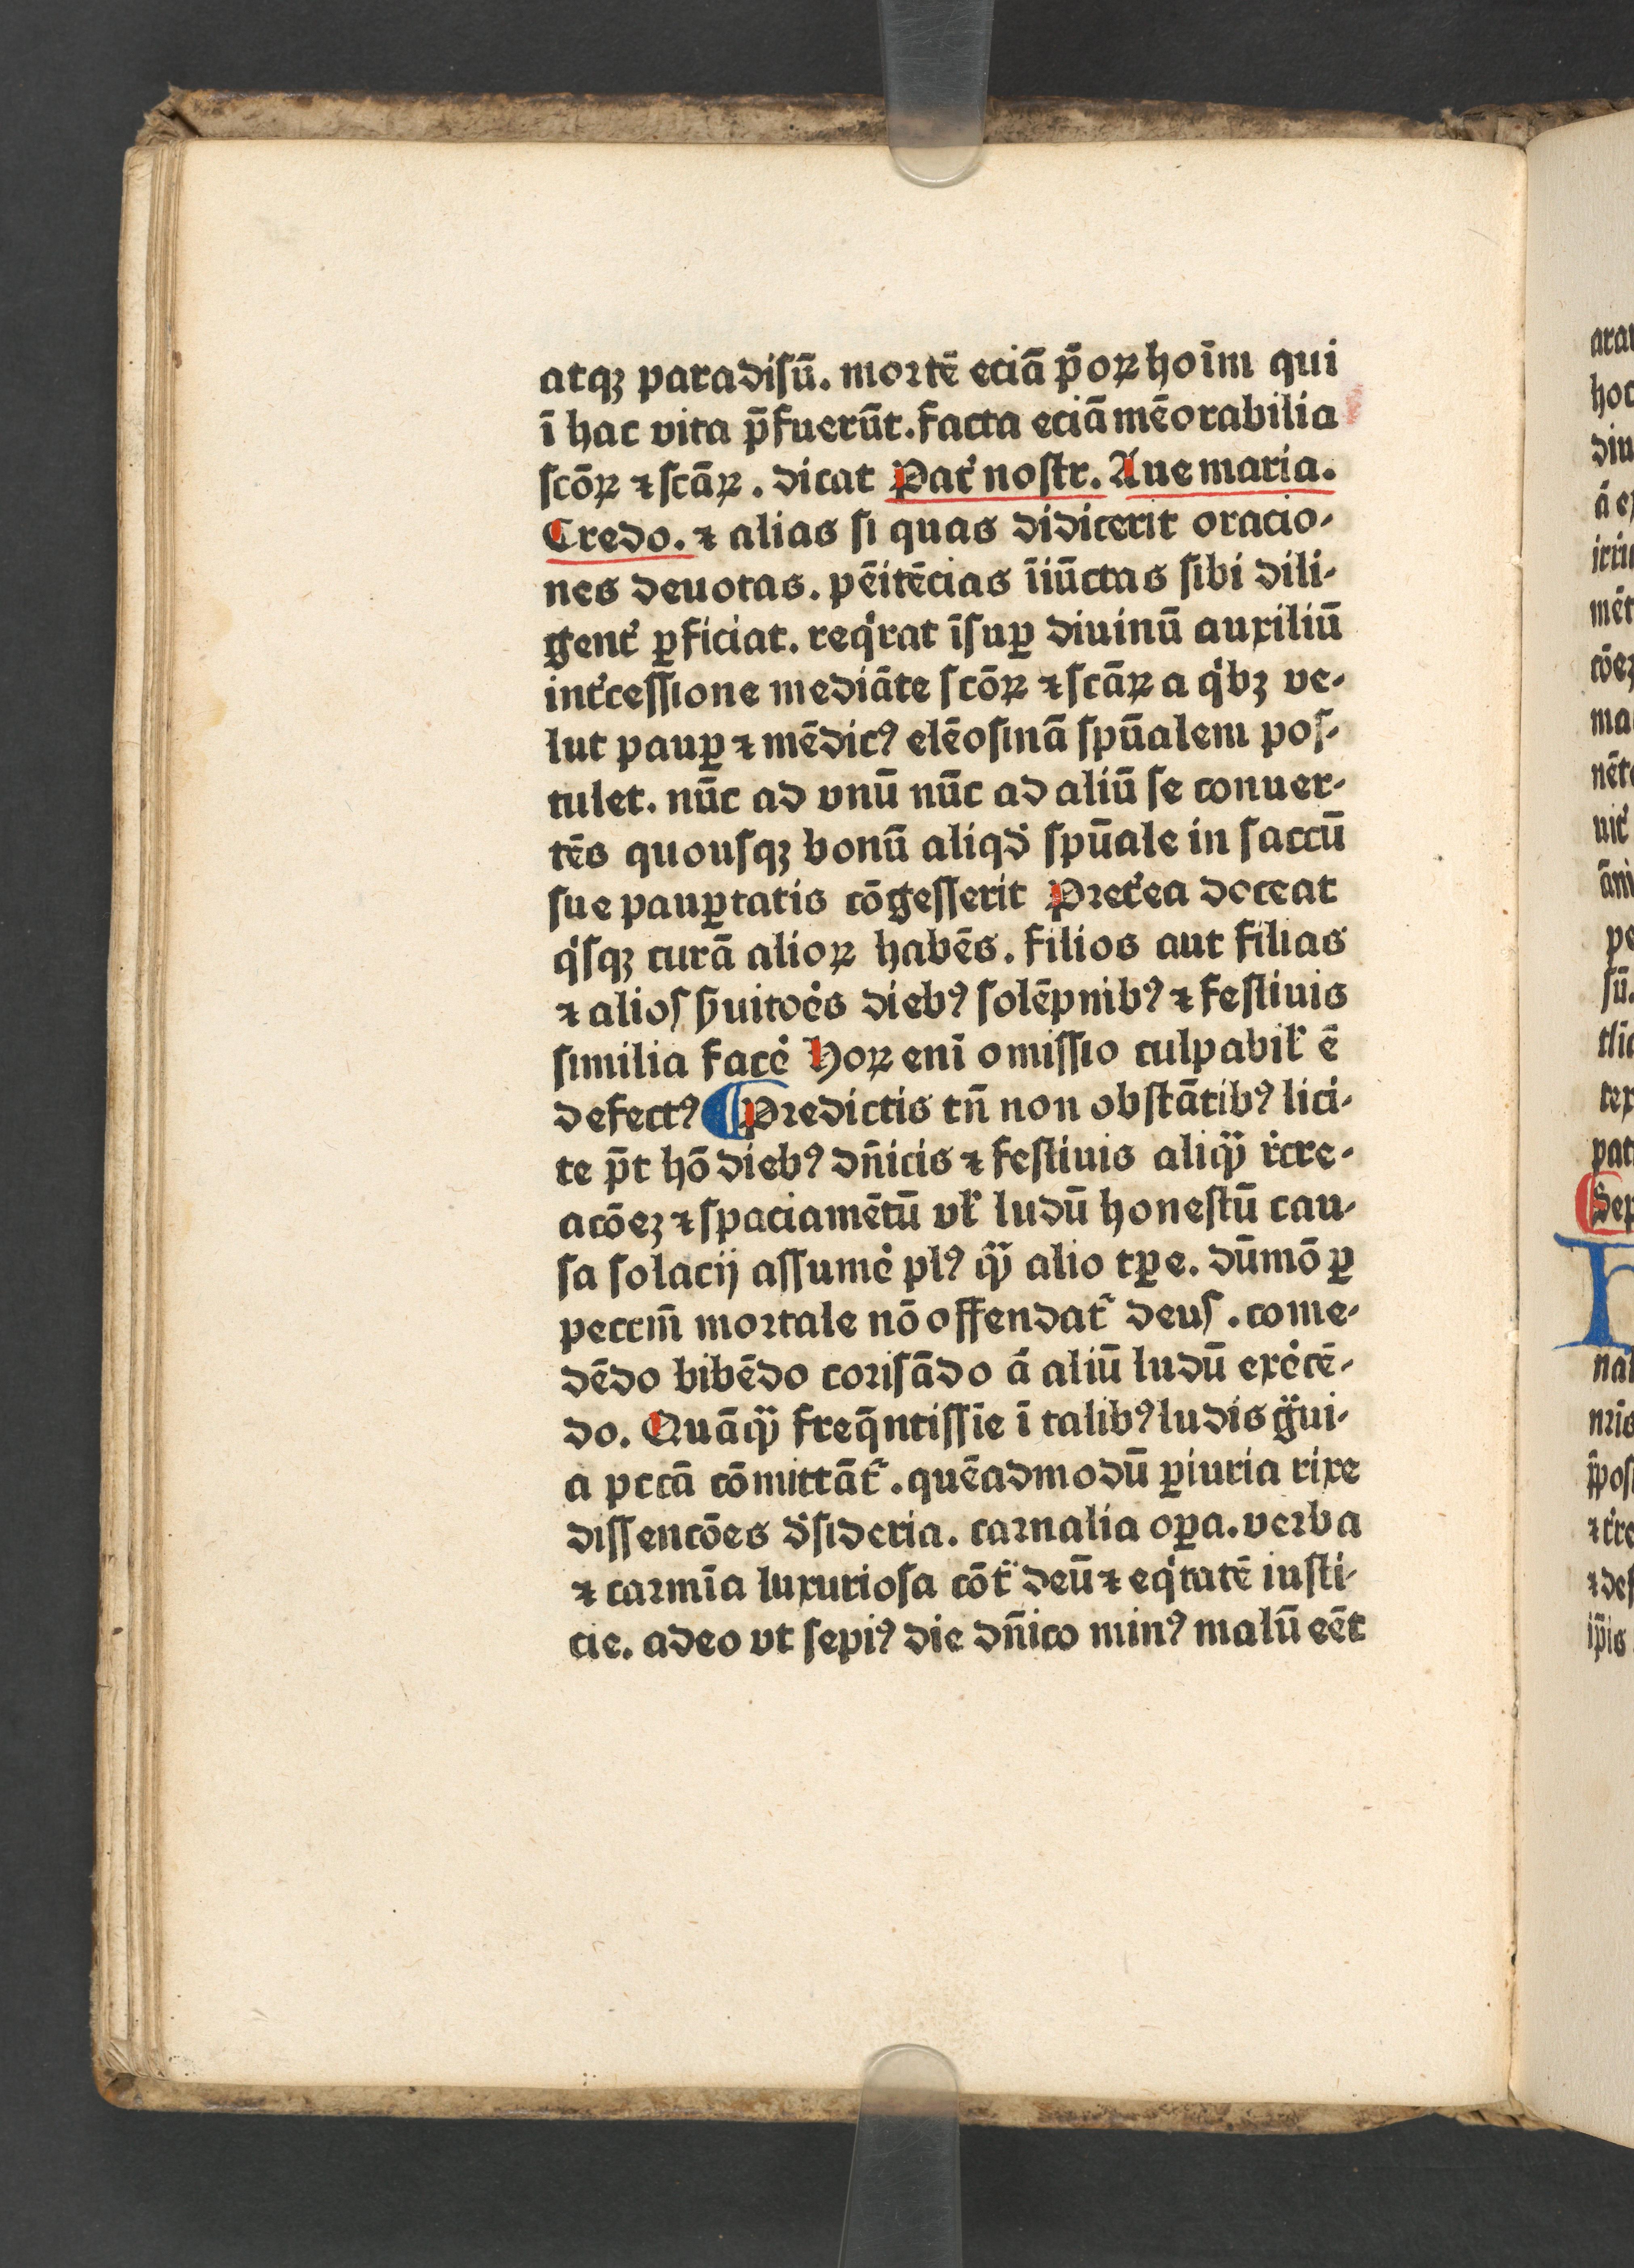 atqꝫ paradisū. mortē eciā p̄oꝝ hoīm qui
ī hac vita p̄fuerūt. facta eciā mēorabilia
scōꝝ ⁊ scāꝝ. dicat Pat͛ nostr. Aue maria.
Credo. ⁊ alias si quas didicerit oracio-
nes deuotas. pēitēcias īiūctas sibi dili-
gent͛ ꝑficiat. reqͥrat īsuꝑ diuinū auxiliū
int͛cessione mediāte scōꝝ ⁊ scāꝝ a qͥbꝫ ve-
lut pauꝑ ⁊ mēdicꝰ elēosinā spūalem pos-
tulet. nūc ad vnū nūc ad aliū se conuer-
tēs quousqꝫ bonū aliqd̛ spūale in saccū
sue pauꝑtatis cōgesserit Pret͛ea doceat
qͥsqꝫ curā alioꝝ habēs. filios aut filias
⁊ alios s̄uitoe͛s diebꝰ solēpnibꝰ ⁊ festiuis
similia face͛ Hoꝝ enī omissio culpabil͛ ē
defectꝰ ¶ Predictis tn̄ non obstātibꝰ lici-
te p̄t hō diebꝰ dn̄icis ⁊ festiuis aliqͣ r͛cre-
acōeꝫ ⁊ spaciamētū vl͛ ludū honestū cau-
sa solacij assume͛ plꝰ qͣ alio tꝑe. dūmō ꝑ
peccm̄ mortale nō offendat᷑ deus. come-
dēdo bibēdo corisādo a͛ aliū ludū exe͛cē-
do. Quāqͣ freq̄ntissīe ī talibꝰ ludis gͣui-
a pccā cōmittāt᷑. quēadmodū ꝑiuria rixe
dissencōes d̛sideria. carnalia oꝑa. verba
⁊ carmīa luxuriosa cōtͣ deū ⁊ eqͥtatē iusti-
cie. adeo vt sepiꝰ die dn̄ico minꝰ malū eēt